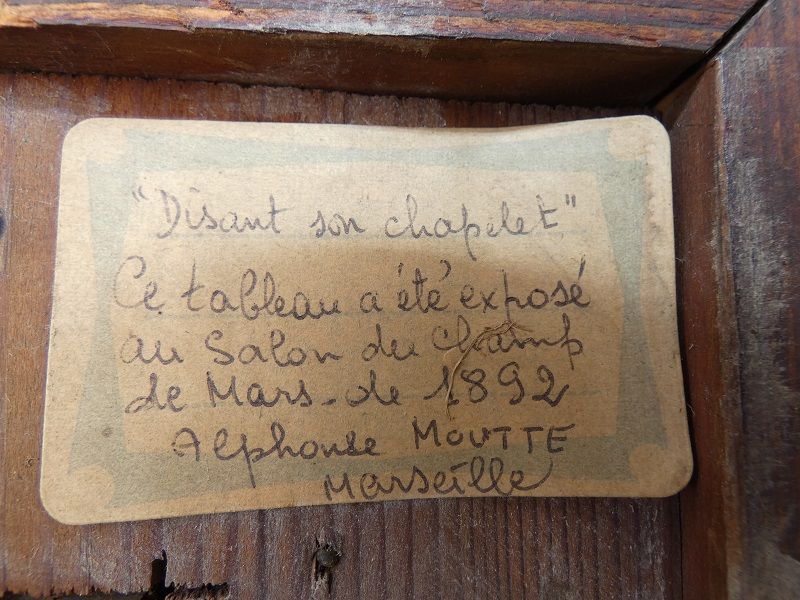 "Disant son chapelet"
Ce tableau a été exposé
au Salon du Champ
de Mars - de 1892
Alphonse MOUTTE
Marseille